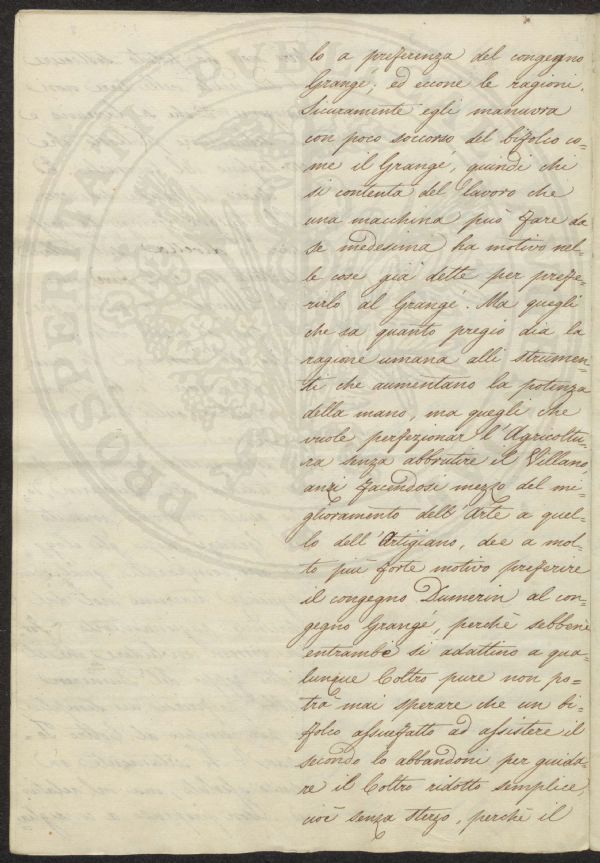 lo a preferenza del congegno
Grangé; ed eccone le ragioni.
Sicuramente egli manuvra
con poco soccorso del bifolco co-
me il Grangé, quindi chi
si contenta del lavoro che
una macchina può fare da
se medesima ha motivo nel-
le cose già dette per prefe-
rirlo al Grangé. Ma quegli
che sa quanto pregio dia la
ragione umana alli strumen-
ti che aumentano la potenza
della mano, ma quegli che
vuole perfezionar l'Agricoltu-
ra senza abbrutire il Villano
anzi facendosi mezzo del mi-
glioramento dell'Arte a quel-
lo dell'Artigiano, dee a mol-
to più forte motivo preferire
il congegno Dumerin al con-
gegno Grangé, perchè sebbene
entrambe si adattino a qua-
lunque Coltro pure non po-
trà mai sperare che un bi-
folco assuefatto ad assistere il
secondo lo abbandoni per guida-
re il Coltro ridotto simplice,
cioè senza sterzo, perchè il
PROSPERITATI PUB